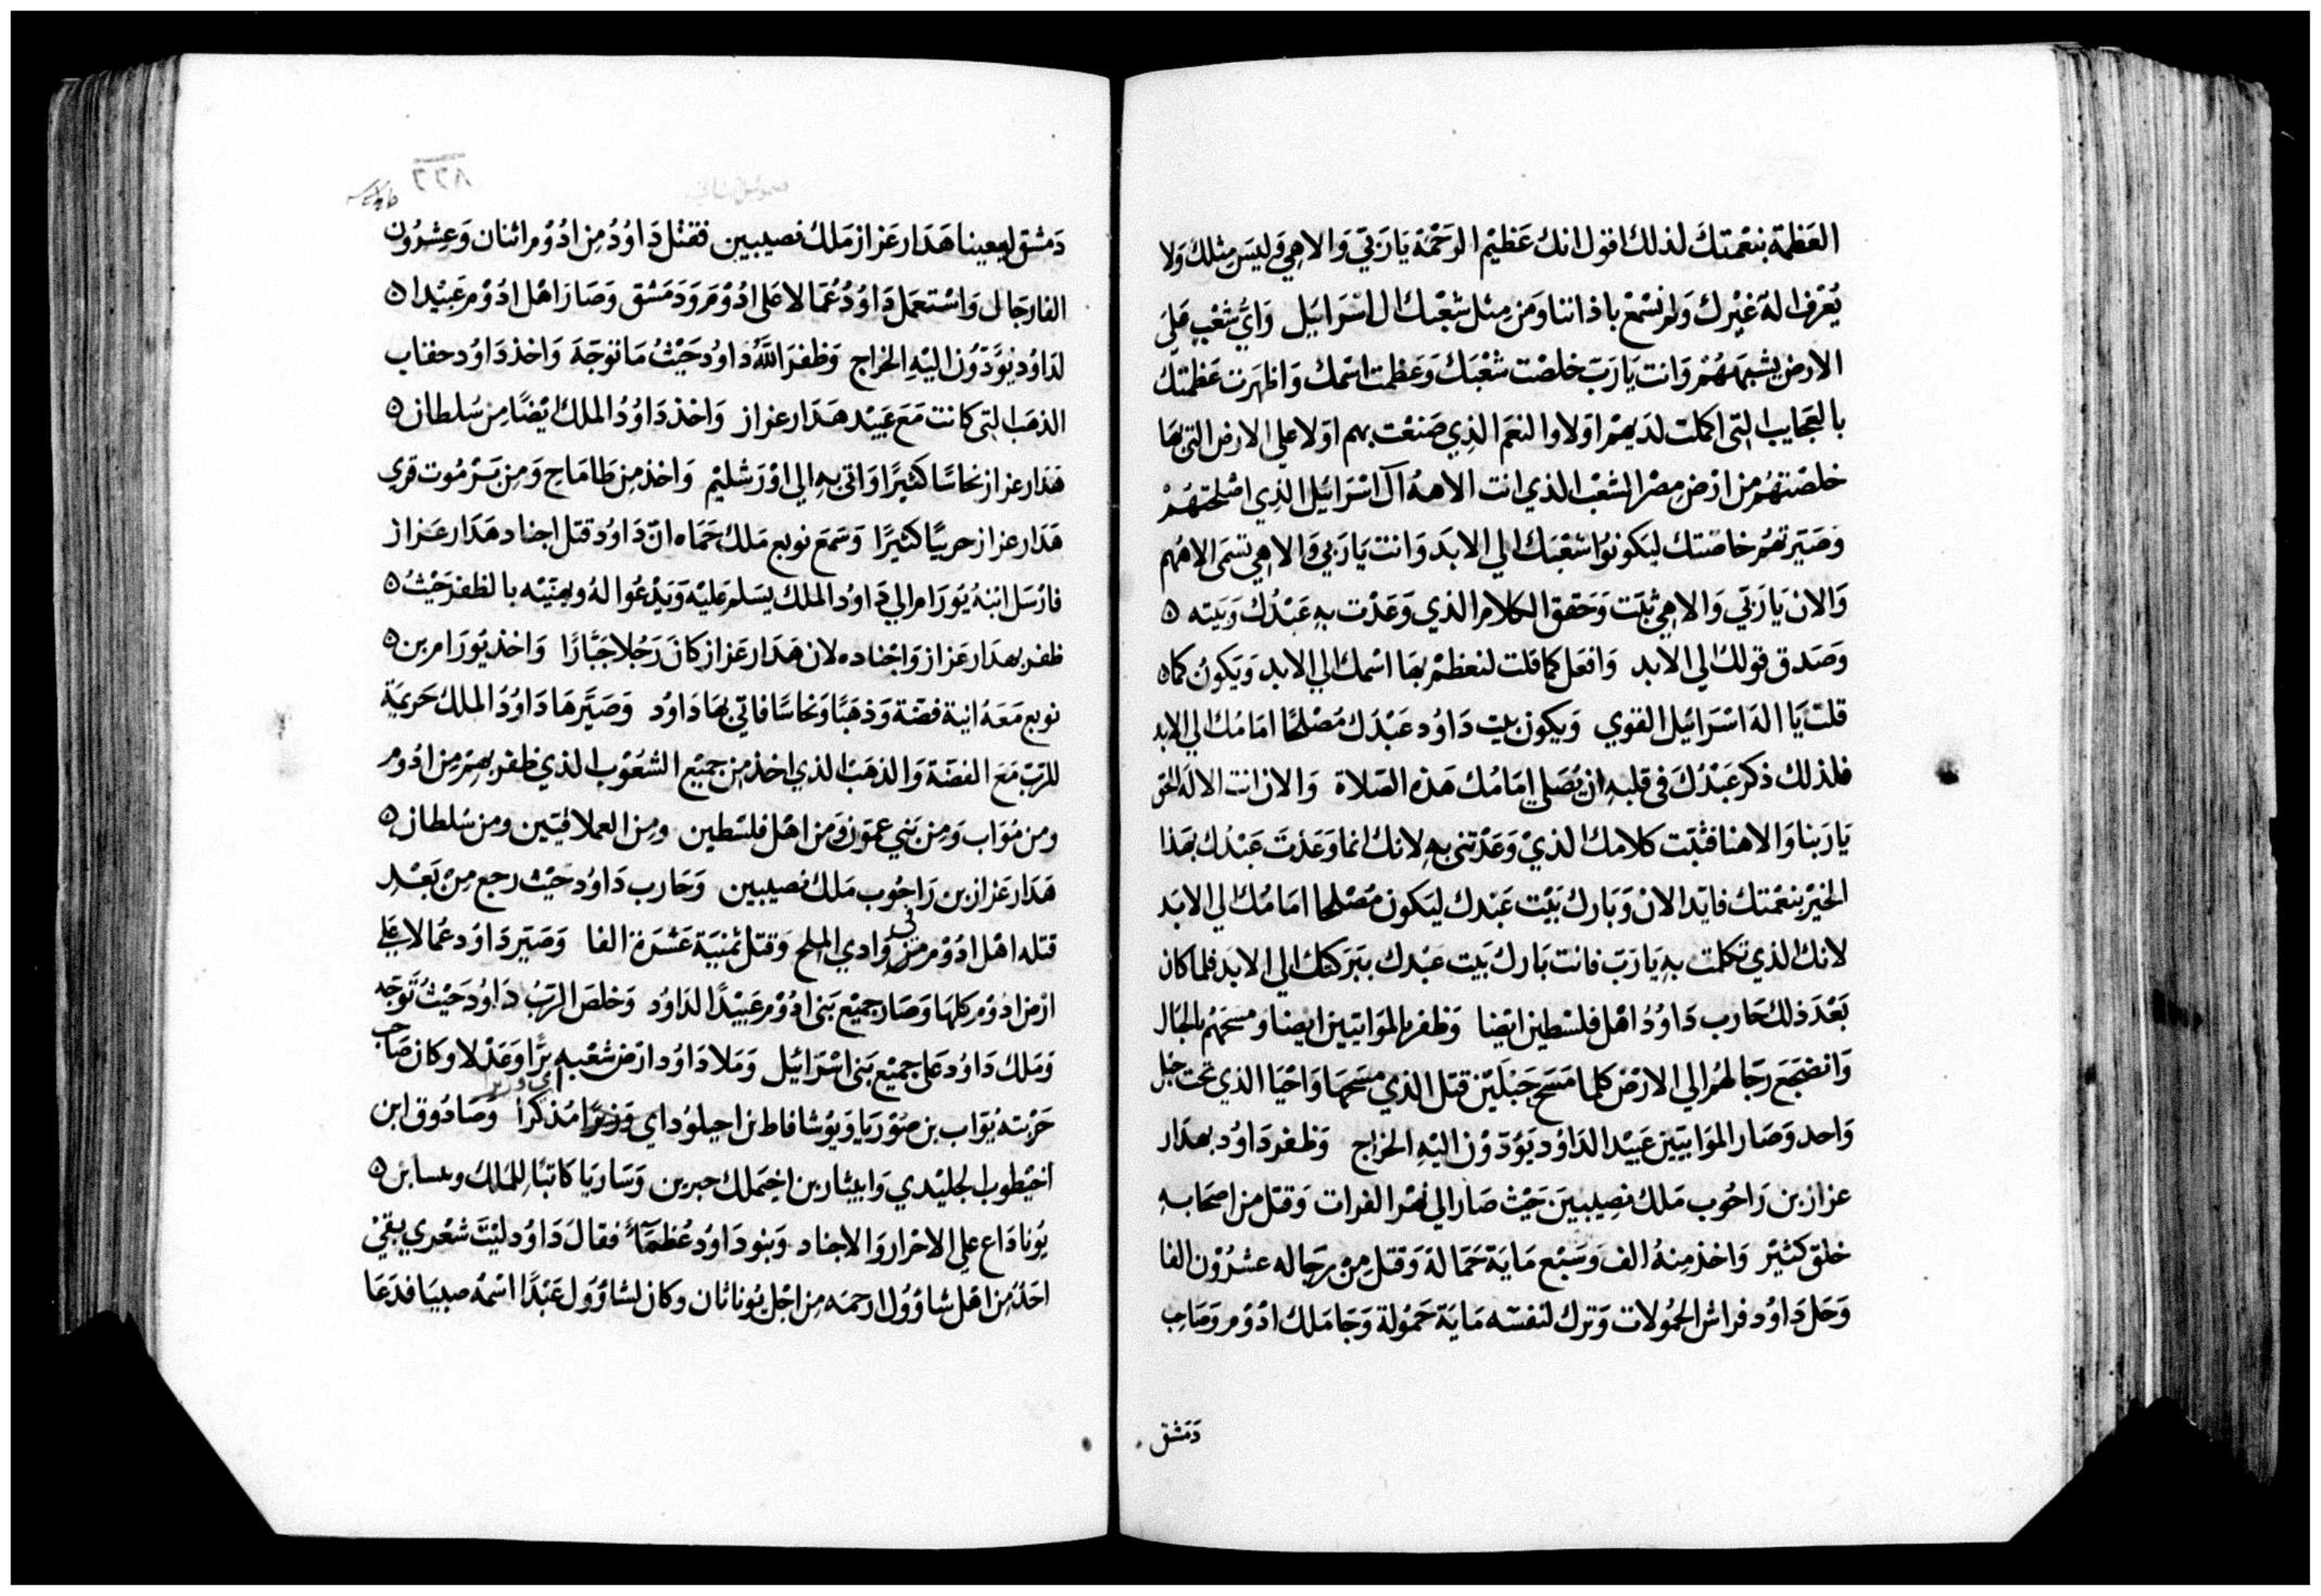 العَظمة بنعمتكَ لذلك اقول انك عَظيْم الرَحْمَة يَا رَبّي وَالاهِي وَليسَ مِثلكَ وَلا
يُعَرف الهٌ غيْرك وَلم نسْمَعْ باذاننا وَمَن مِثل شعْبك ال اسْرَاييل وَايُّ شعْبٍ عَلى
الارض يشبههُمْ وَانت يَا رَبّ خلصْت شعْبَكَ وَعَظمت اسْمك وَاظهَرت عَظمتك
بالعَجايب التي اكملت لدَيهمْ اوَلا والنعَم الذِي صَنعْت بهم اوَلا علي الارض التي بهَا
خلصْتهُم من ارْض مِصْر الشعْب الذي انت الاههُ آل اسْرَائيل الذِي اصْلحتهُمْ
وَصَيّرتهُم خاصّتك ليَكونوُا شعْبَك الي الابدَ وَانت يَا رَبي وَالاهِي تسمى الاههم
وَالان يَا رَبّي وَالاهِي ثبّت وَحَقق الكلام الذي وَعَدْت بهِ عَبْدُك وَبَيته ه
وَصَدق قولك الي الابد وَافعَل كما قلت لنعظمْ بهَا اسْمك الي الابد وَيَكونُ كما ه
قلت يَا الهَ اسْرَائيل القوي وَيكون بيت دَاوُد عَبْدَك مُصْلحًا امَامُك الي الابد
فلذلك ذكر عَبْدُكَ في قلبهِ ان يُصَلي امَامُك هَذه الصّلاة وَالان انت الالَه الحَق
يَا رَبنا وَالاهنا فثبّت كلامك الذيْ وَعَدْتني بهِ لانك انما وَعَدْتَ عَبْدُك بهَذا
الخيْر بنعْمتك فايّد الانْ وَبَارك بَيْت عَبْدك ليَكون مُصْلحا امَامُك الي الابَد
لانك الذي تكلمت بهِ يَا رَبّ فانت بَارك بَيت عَبْدك ببَرَكتك الي الابَد فلما كان
بَعْدَ ذلك حَارب دَاوُدُ اهْل فلسْطين ايْضا وَظفر بالموَابيين ايضا وَمسَحَهُم بالحبَال
وَانضجَع رجَالهُم الي الارْض كلما مَسَح حَبْلَيْن قتل الذي مسَحهَا وَاحْيَا الذي تحت حَبْل
وَاحد وَصَار الموَابيين عَبيْدا لدَاوُد يَؤدّوْن اليْهِ الخرَاج وَظفر دَاوُد بهدَار
عزاز بن رَاحُوب مَلك نصِيبيَن حَيْث صَار الي نَهر الفرات وَقتل من اصحَابهِ
خلقٌ كثيْر وَاخذ مِنهُ الف وَسَبْع مَايَة حَمّالة وَقتل مِنْ رجَاله عشرُوْن الفا
وَحَل دَاوُد فراش الحمُولات وَترك لنفسَه مَايَة حَمُولة وَجَا مَلك ادُوْم وَصَاحِب
دَمَشق
صموئيل ثاني
٨٢٦
دَمشق ليعينا هَدَار عَزاز مَلكُ نصيبين فقتل دَاوُدُ مِن ادُوْم اثنان وَعِشرُون
الفا رجَال وَاسْتعمَل دَاوُدُ عُمَالا عَلى ادُوْم وَدَمَشق وَصَارَ اهْل ادُوْم عَبيْدا ه
لدَاوُد يؤدّوُن اليْهِ الخراج وَظفرَ اللّهُ دَاوُد حَيْثُ مَا توجّهَ وَاخذ دَاوُد حفاب
الذهَب التي كانت مَعَ عَبيْد هَدَار عزاز وَاخذ دَاوُدُ الملك ايْضًا مِن سُلطان ه
هَدَار عزاز نحاسًا كثيْرًا وَاتي بهِ الي اوْرَشليْم وَاخذ مِن طامَاح وَمِن بَرْمُوت قري
هَدَار عزاز حربيًا كثيْرًا وَسَمع نوبع مَلك حَمَاه انّ دَاوُد قتل اجناد هَدَار عَزاز
فارْسَل ابنهُ يُورَام الي دَاوُد الملك يسَلم عَليْهَ وَيَدْعُوا لهُ ويهنيْه بالظفر حَيْثُ ه
ظفر بهدَار عَزاز وَاجْناده لان هَدَار عَزاز كانَ رَجُلا جَبَّارًا وَاخذ يُورَام بن ه
نوبع مَعَهُ انية فضّة وَذهَبًا وَنحاسًا فاتي بهَا دَاوُد وَصَيَّرهَا دَاوُدُ الملك حَريمَةٍ
للرّبّ مَعَ الفضّة وَالذهَب الذي اخذ مِن جميْع الشعُوْب الذي ظفر بهمْ مِن ادُوْم
ومن مُوَاب وَمِن بَني عمّوَن وَمن اهْل فلسْطين ومِن العملاقيّين ومن سُلطان ه
هَدَار عَزاز بن رَاحُوب مَلك نصيبين وَحَارب دَاوُد حَيْث رجع مِنْ بَعْدِ
قتله اهْل ادُوْم من في وَادي الملح وَقتل ثمنيَة عَشرَة الفا وَصَيّر دَاوُد عُمالا علي
ارْض ادُوْم كلهَا وَصَار جميْع بَني ادُوْم عَبيْدًا لدَاوُد وَخلصَ الرّبُ دَاوُد حَيْثُ توَجّه
وَمَلك دَاوُد عَلى جميْع بَني اسْرَائيل وَمَلا دَاوُد ارْض شعْبهِ برًّا وَعَدْلا وكان صَاحب
اي وزيرا
حَرْبته يُوَاب بن صُوْريَا وَيُوشافاط بن احيلوُد اي وَزيْرًا مُذكرا وَصَادُوق ابن
اخيْطوب الجليْدي وَابيثار بن اخِيمَلك حبرين وَسَاريَا كاتبًا لِلمَلكَ وبسابن ه
يُونادَاع علي الاحْرار وَالاجناد وَبنو دَاوُد عُظمَآءُ فقالَ دَاوُد ليْتَ شعْري بقيْ
احَدٌ مِن اهْل شاؤوُل ارحمَه مِن اجْل يُوناثان وكان لشاؤوُل عَبْدًا اسْمُه صيبَا فدَعَا